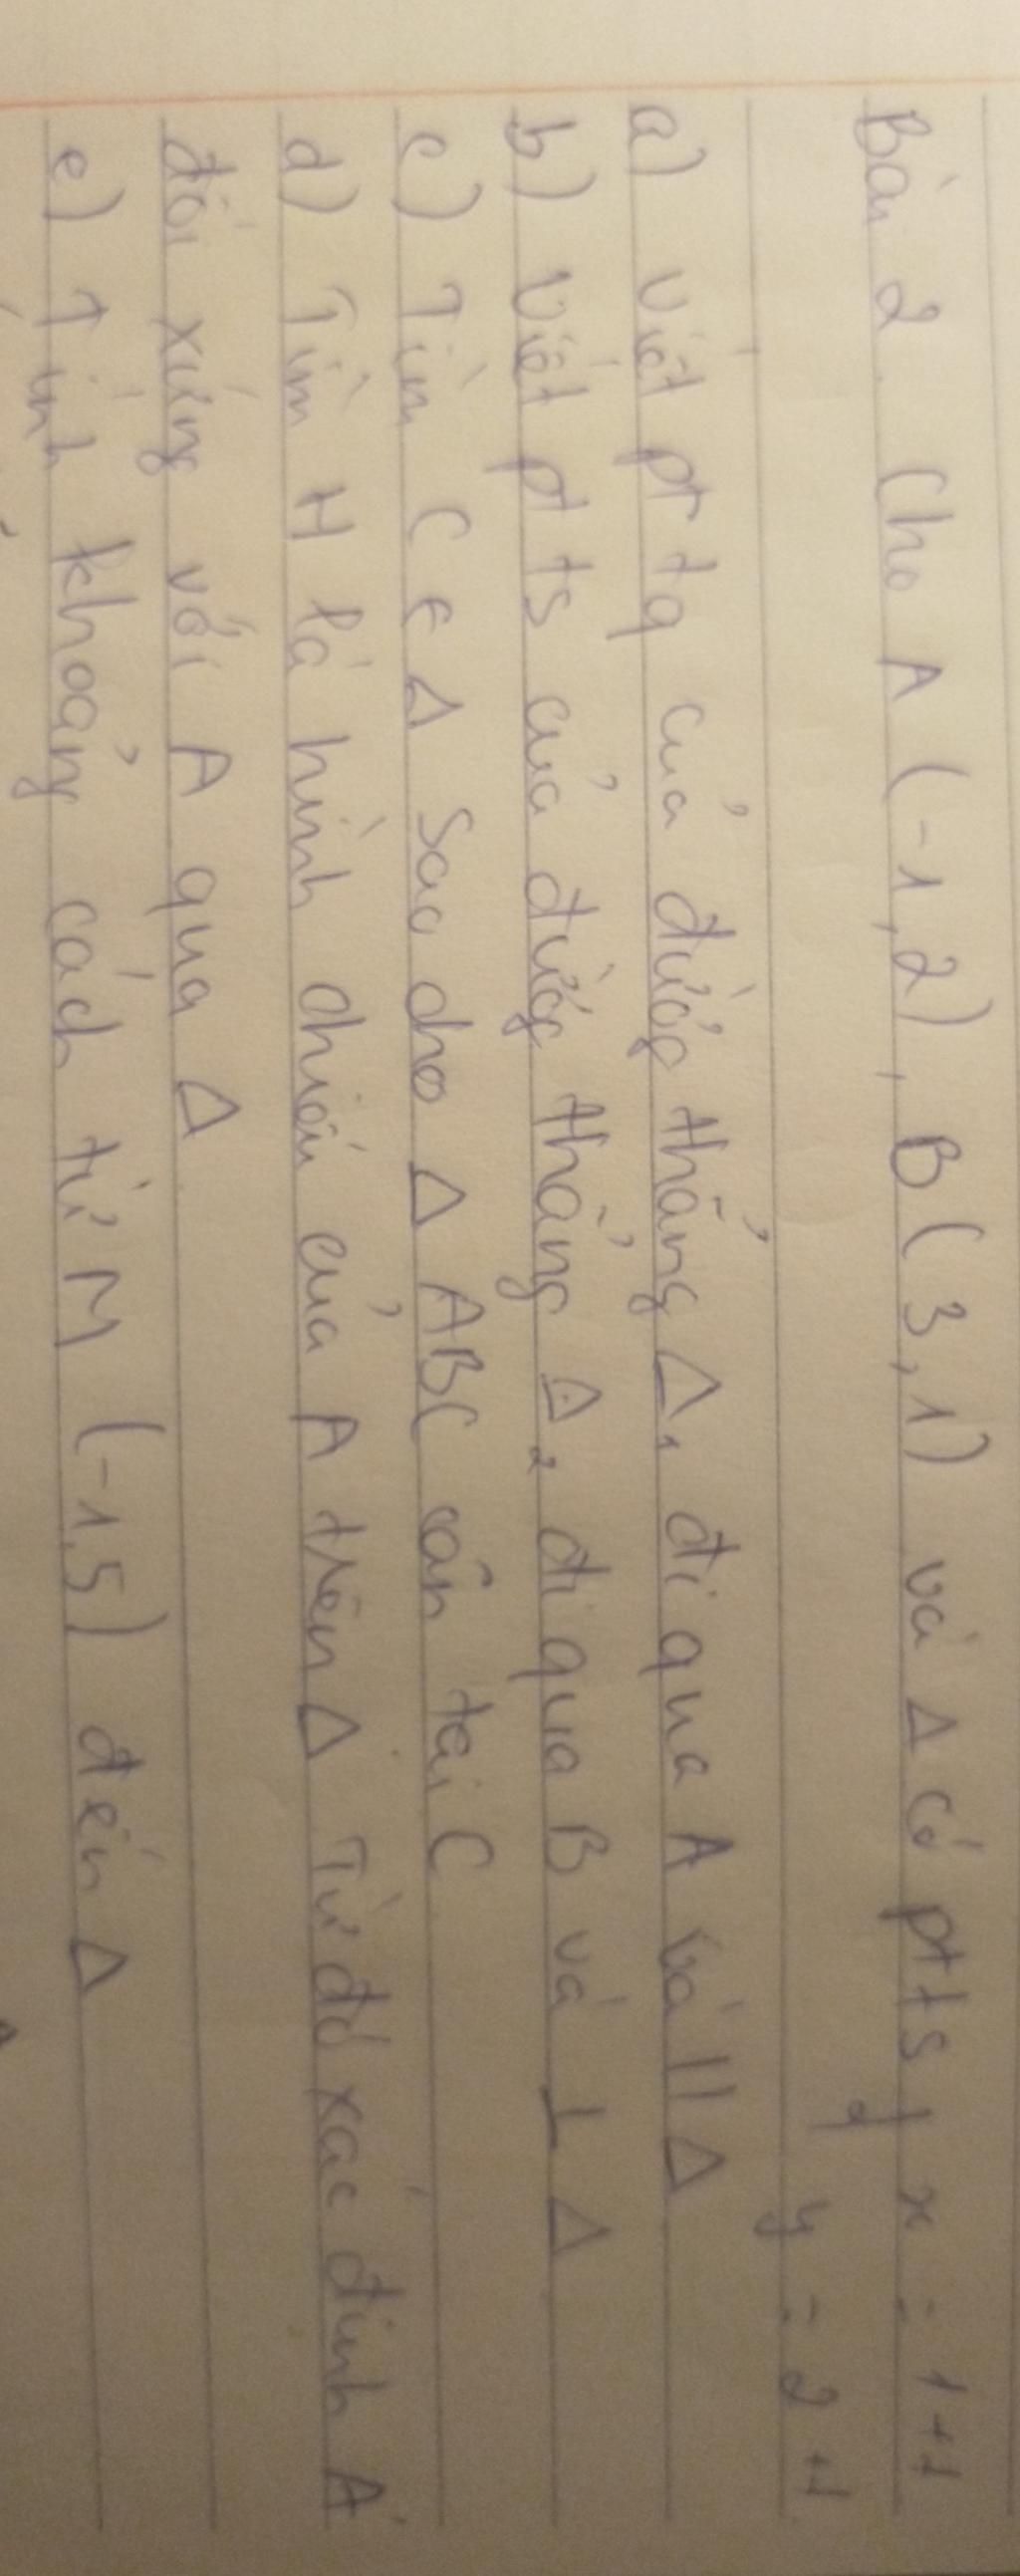 Bài 2. Cho A (-1,2), B(3,1) và Δ có ptts { x = 1+t
y = 2+t
a) Viết pt tq của đường thẳng Δ₁ đi qua A và // Δ
b) Viết pt ts của đường thẳng Δ₂ đi qua B và ⊥ Δ
c) Tìm C ∈ Δ sao cho Δ ABC cân tại C
d) Tìm H là hình chiếu của A trên Δ Từ đó xác định A'
đối xứng với A qua Δ
e) Tính khoảng cách từ M (-1,5) đến Δ